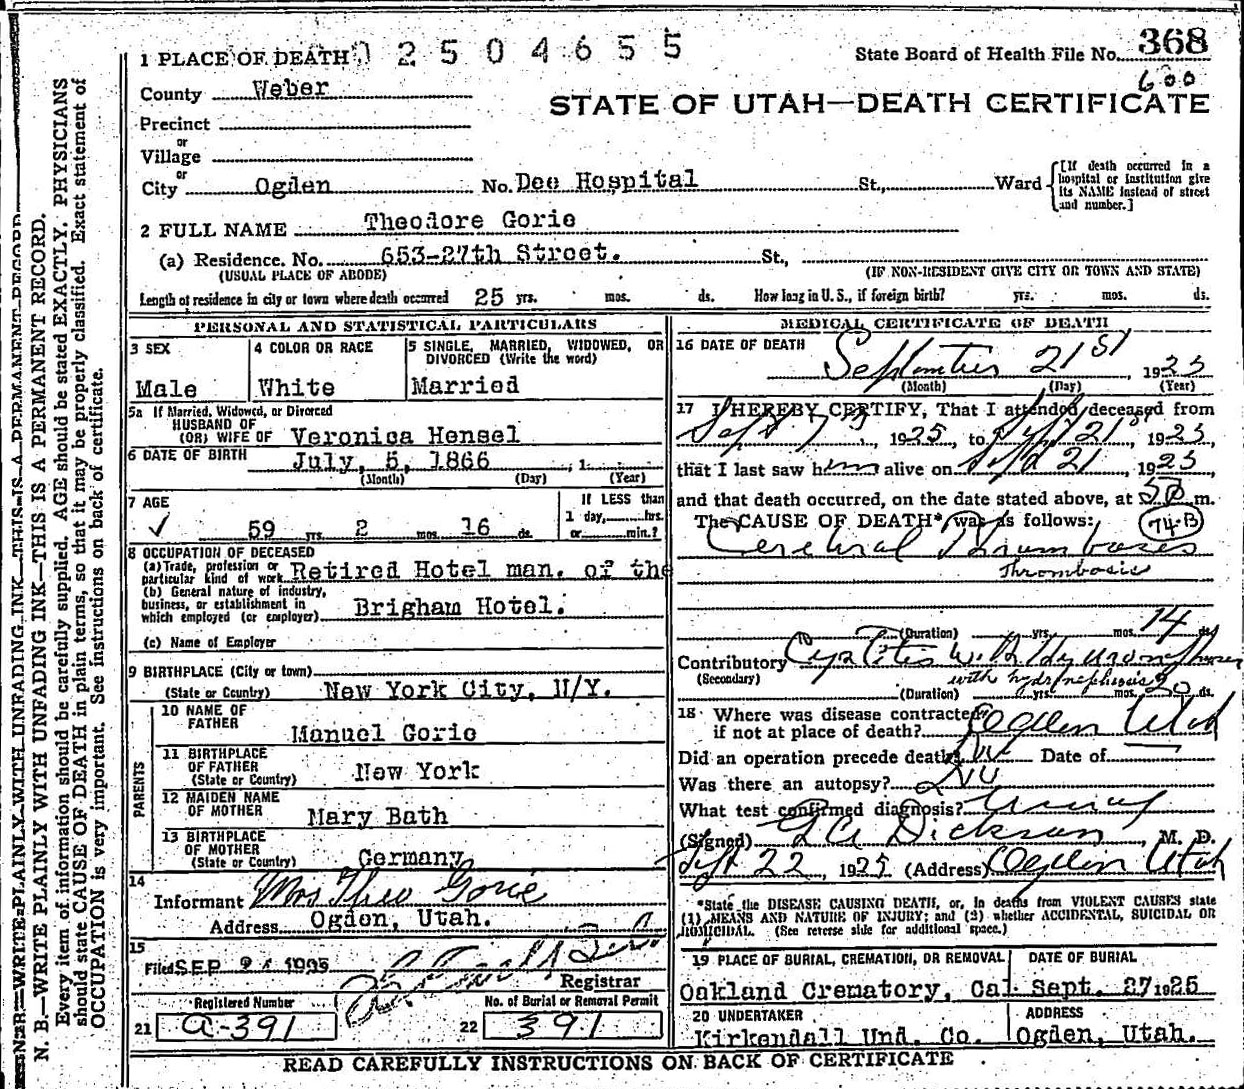 N. B.—WRITE PLAINLY WITH UNFADING INK—THIS IS A PERMANENT RECORD.
Every item of information should be carefully supplied. AGE should be stated EXACTLY. PHYSICIANS
should state CAUSE OF DEATH in plain terms, so that it may be properly classified. Exact statement of
OCCUPATION is very important. See instructions on back of certificate.
1 PLACE OF DEATH 2504655
State Board of Health File No. 368
600
County Weber
STATE OF UTAH—DEATH CERTIFICATE
Precinct
or
Village
or
City Ogden No. Dee Hospital St., Ward
[If death occurred in a
hospital or institution give
its NAME instead of street
and number.]
2 FULL NAME Theodore Gorie
(a) Residence. No. 653-27th Street. St.,
(USUAL PLACE OF ABODE) (IF NON-RESIDENT GIVE CITY OR TOWN AND STATE)
Length of residence in city or town where death occurred 25 yrs. mos. ds. How long in U. S., if foreign birth? yrs. mos. ds.
PERSONAL AND STATISTICAL PARTICULARS
3 SEX
Male
4 COLOR OR RACE
White
5 SINGLE, MARRIED, WIDOWED, OR
DIVORCED (Write the word)
Married
5a If Married, Widowed, or Divorced
HUSBAND OF
(OR) WIFE OF Veronica Hensel
6 DATE OF BIRTH July, 5, 1866 , 1
(Month) (Day) (Year)
7 AGE
✓ 59 yrs. 2 mos. 16 ds.
If LESS than
1 day, hrs.
or min.?
8 OCCUPATION OF DECEASED
(a) Trade, profession or
particular kind of work Retired Hotel man. of the
(b) General nature of industry,
business, or establishment in
which employed (or employer) Brigham Hotel.
(c) Name of Employer
9 BIRTHPLACE (City or town)
(State or Country) New York City, N/Y.
PARENTS
10 NAME OF
FATHER Manuel Gorie
11 BIRTHPLACE
OF FATHER
(State or Country) New York
12 MAIDEN NAME
OF MOTHER Mary Bath
13 BIRTHPLACE
OF MOTHER
(State or Country) Germany
14
Informant Mrs Theo Gorie
Address Ogden, Utah.
15
Filed SEP
Registrar
Registered Number
21 a-391
No. of Burial or Removal Permit
22 391
MEDICAL CERTIFICATE OF DEATH
16 DATE OF DEATH
September 21st, 1925
(Month) (Day) (Year)
17 I HEREBY CERTIFY, That I attended deceased from
Sept 7th, 1925, to Sept 21st, 1925,
that I last saw him alive on Sept 21, 1925
and that death occurred, on the date stated above, at m.
The CAUSE OF DEATH* was as follows: 74-B
Cerebral Thrombosis
Thrombosis
(Duration) yrs. mos. 14 ds.
Contributory Cystitis with Hydronephrosis
(Secondary) with hydronephrosis
(Duration) yrs. mos. 20 ds.
18 Where was disease contracted
if not at place of death? Ogden Utah
Did an operation precede death? No Date of
Was there an autopsy? No
What test confirmed diagnosis?
(Signed) Dickson, M. D.
Sept 22, 1925 (Address) Ogden Utah
*State the DISEASE CAUSING DEATH, or, in deaths from VIOLENT CAUSES state
(1) MEANS AND NATURE OF INJURY; and (2) whether ACCIDENTAL, SUICIDAL OR
HOMICIDAL. (See reverse side for additional space.)
19 PLACE OF BURIAL, CREMATION, OR REMOVAL
Oakland Crematory, Cal.
DATE OF BURIAL
Sept. 27 1925
20 UNDERTAKER
Kirkendall Und. Co.
ADDRESS
Ogden, Utah.
READ CAREFULLY INSTRUCTIONS ON BACK OF CERTIFICATE